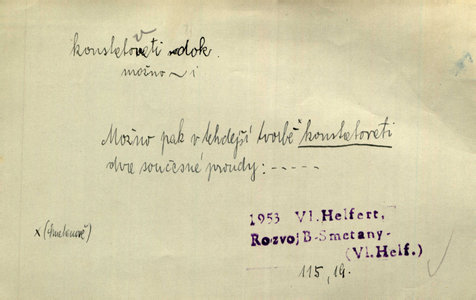 konstatovati dok.
možno ~ i
Možno pak v tehdejší tvorbě x konstatovati
dva současné proudy: -----
x (Smetanově)
1953 Vl.Helfert,
Rozvoj B-Smetany-
(Vl.Helf.)
115, 19.